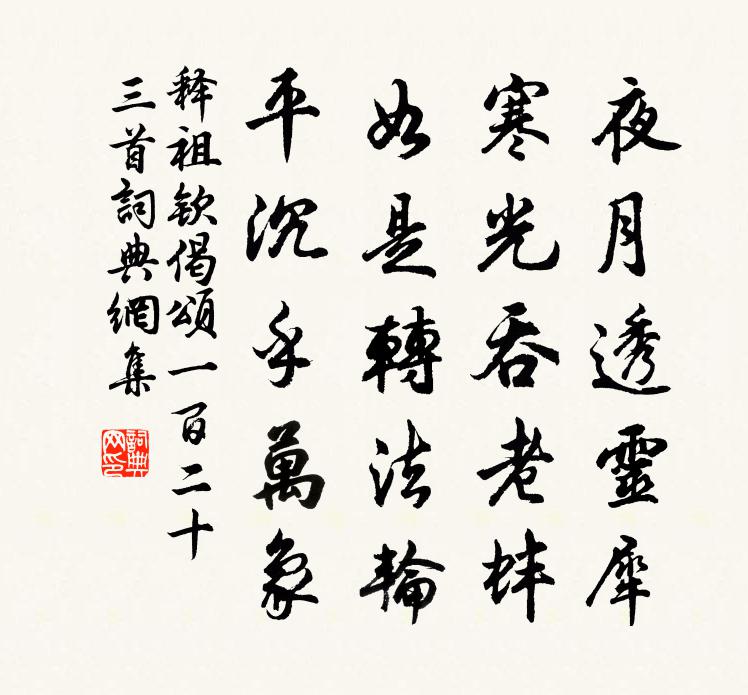 夜月透靈犀
寒光吞老蚌
如是轉法輪
平沉乎萬象
释祖欽偈頌一百二十
三首詞典網集
詞典網印